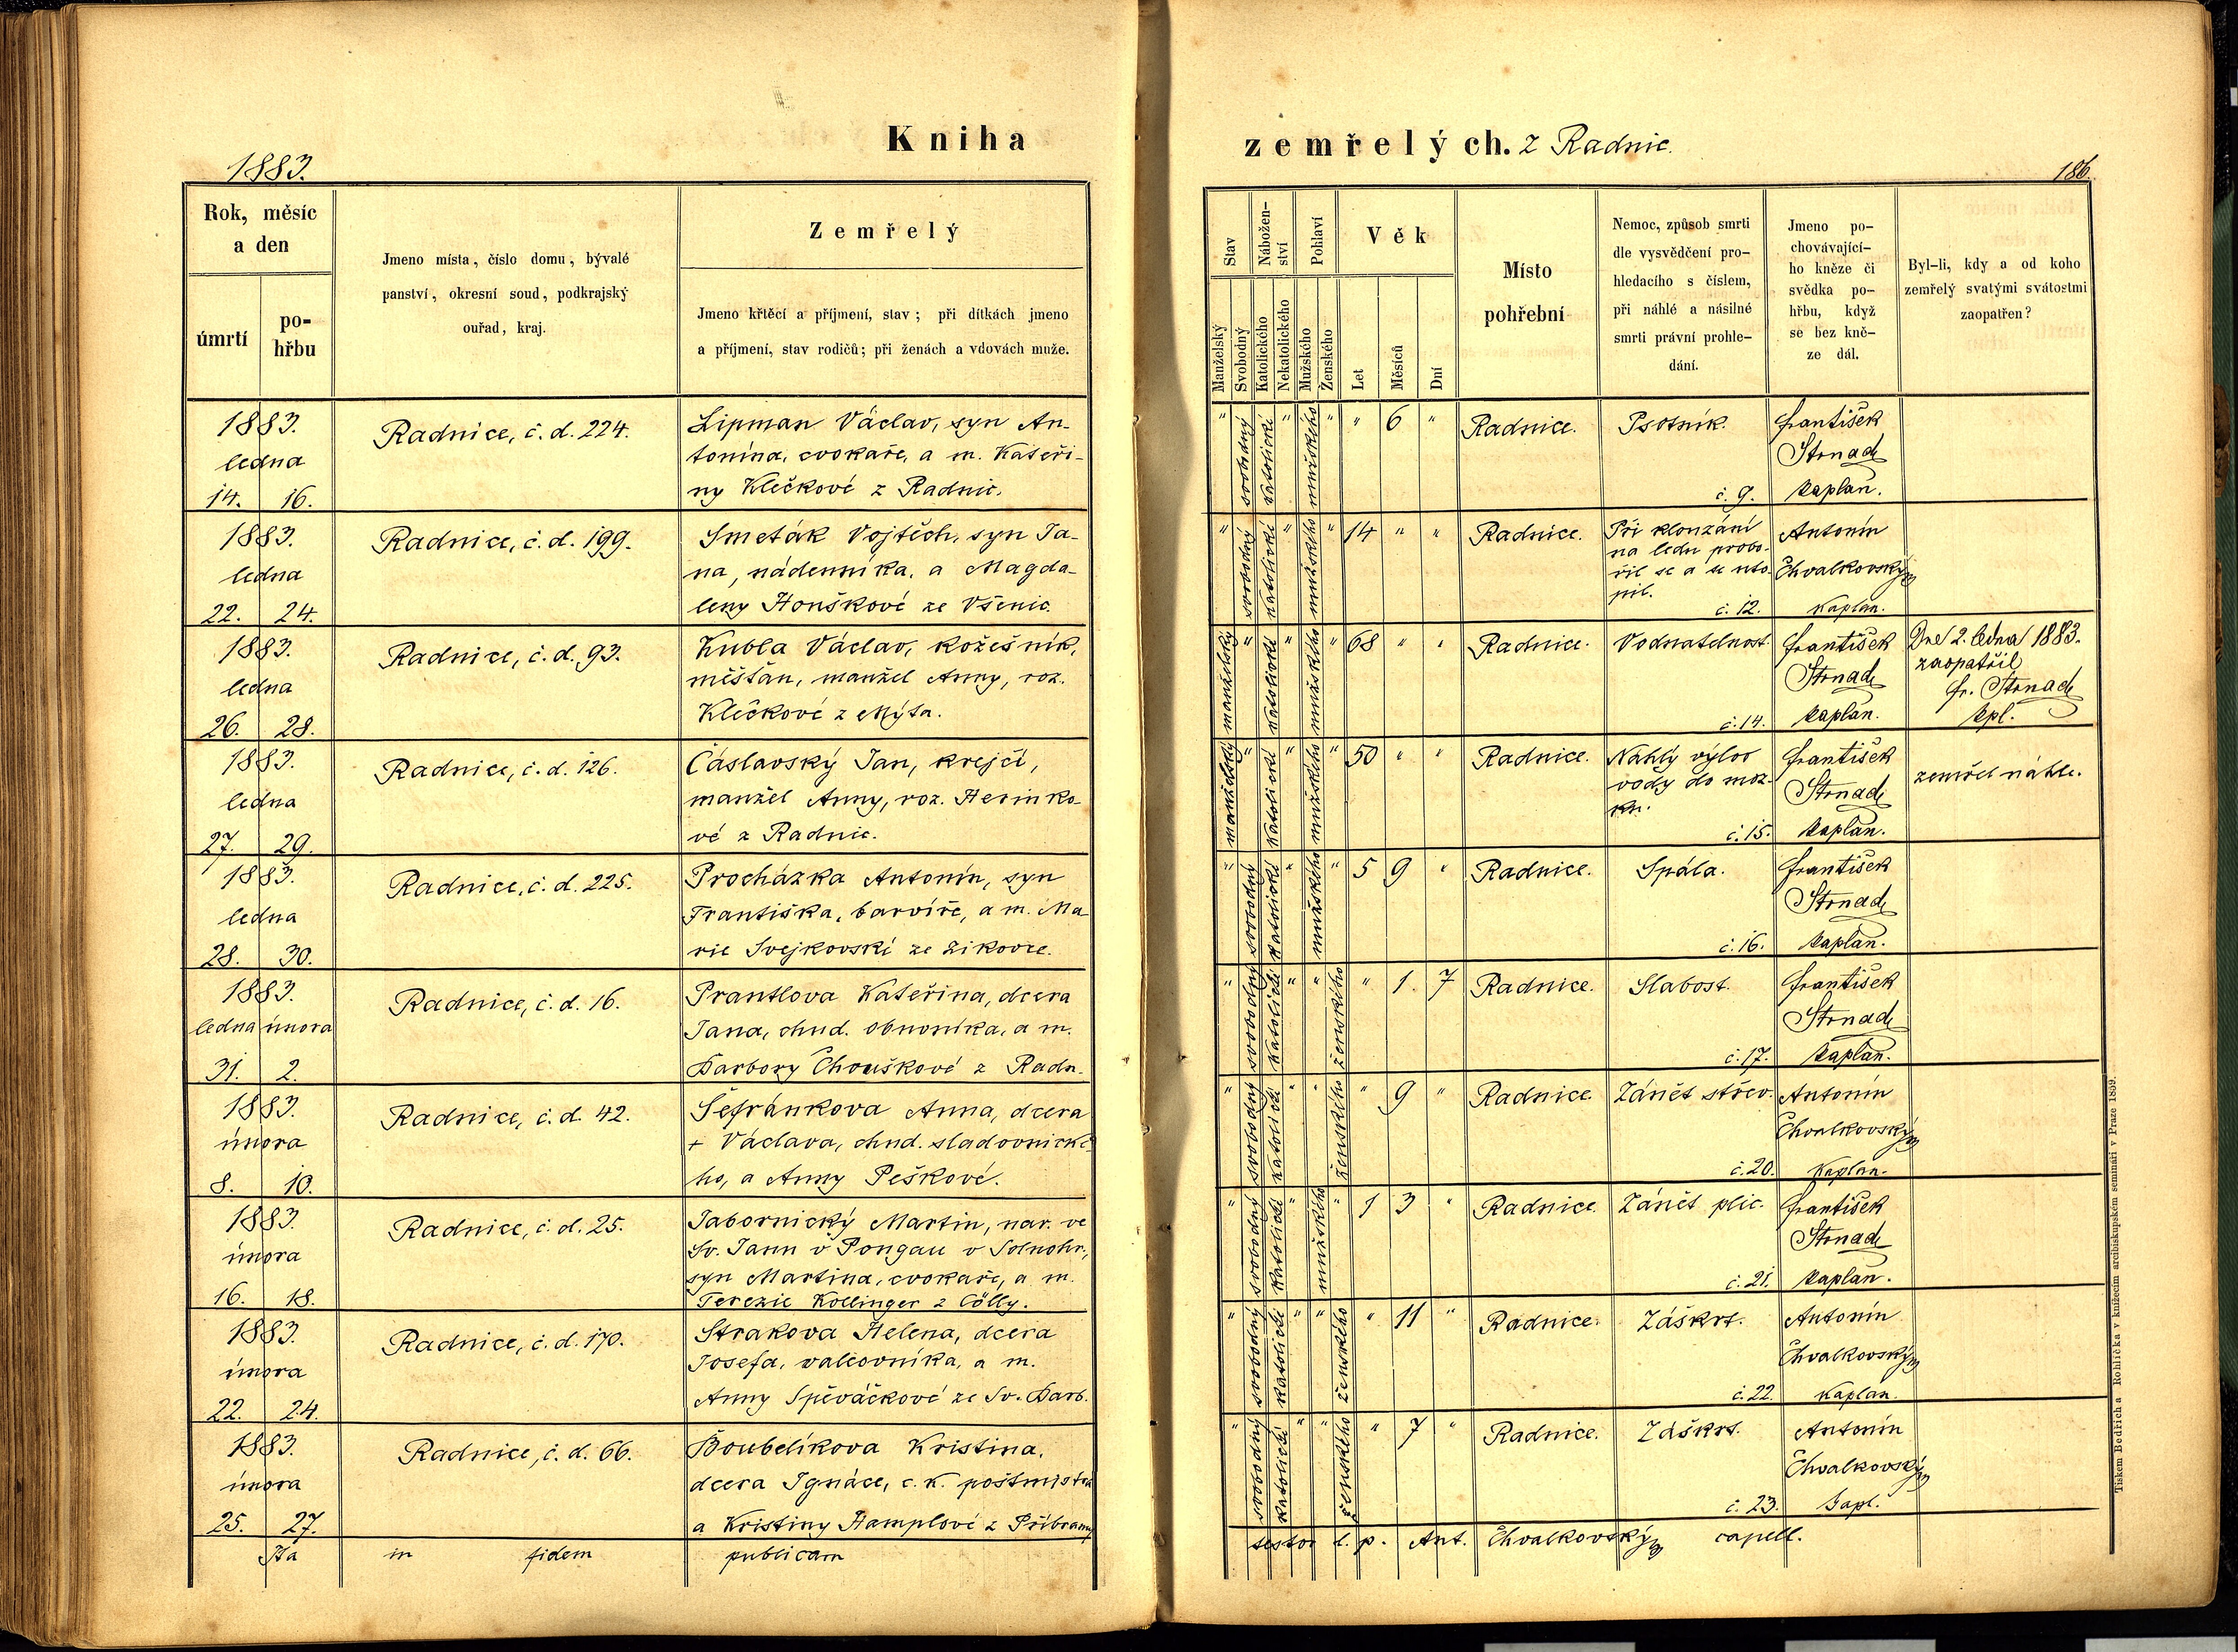 Kniha zemřelých. z Radnic.
1883.
186.
Rok, měsíc
a den
úmrtí
po-
hřbu
Jmeno místa, číslo domu, bývalé
panství, okresní soud, podkrajský
ouřad, kraj.
Zemřelý
Jmeno křtěcí a příjmení, stav; při dítkách jmeno
a příjmení, stav rodičů; při ženách a vdovách muže.
Stav
Manželský
Svobodný
Nábožen-
ství
Katolického
Nekatolického
Pohlaví
Mužského
Ženského
Věk
Let
Měsíců
Dní
Místo
pohřební
Nemoc, způsob smrti
dle vysvědčení pro-
hledacího s číslem,
při náhlé a násilné
smrti právní prohle-
dání.
Jmeno po-
chovávající-
ho kněze či
svědka po-
hřbu, když
se bez kně-
ze dál.
Byl-li, kdy a od koho
zemřelý svatými svátostmi
zaopatřen?
1883.
ledna
14. 16.
Radnice, č. d. 224.
Lipman Václav, syn An-
tonína, cvokaře, a m. Kateři-
ny Klečkové z Radnic.
" svobodný katolické " mužského " " 6 "
Radnice.
Psotník.
č. 9.
František
Strnad
kaplan.
1883.
ledna
22. 24.
Radnice, č. d. 199.
Smeták Vojtěch, syn Ja-
na, nádenníka, a Magda-
leny Houškové ze Všenic.
" svobodný katolické " mužského " 14 " "
Radnice.
Při klouzání
na ledu probo-
řil se a se uto-
pil.
č. 12.
Antonín
Chvalkovský
kaplan.
1883.
ledna
26. 28.
Radnice, č. d. 93.
Kubla Václav, kožešník,
měšťan, manžel Anny, roz.
Klečkové z Mýta.
manželský " katolické " mužského " 68 " "
Radnice.
Vodnatelnost.
č. 14.
František
Strnad
kaplan.
Dne 2. ledna 1883.
zaopatřil
Fr. Strnad
kpl.
1883.
ledna
27. 29.
Radnice, č. d. 126.
Čáslavský Jan, krejčí,
manžel Anny, roz. Herinko-
vé z Radnic.
manželský " katolické " mužského " 50 " "
Radnice.
Náhlý výlov
vody do moz-
ku.
č. 15.
František
Strnad
kaplan.
zemřel náhle.
1883.
ledna
28. 30.
Radnice, č. d. 225.
Procházka Antonín, syn
Františka, barvíře, a m. Ma-
rie Svejkovské ze Zikovce.
" svobodný katolické " mužského " 5 9 "
Radnice.
Spála.
č. 16.
František
Strnad
kaplan.
1883.
ledna února
31. 2.
Radnice, č. d. 16.
Prantlova Kateřina, dcera
Jana, chud. obuvníka, a m.
Barbory Chouškové z Radn.
" svobodný katolické " " ženského " 1. 7
Radnice.
Slabost.
č. 17.
František
Strnad
kaplan.
1883.
února
8. 10.
Radnice, č. d. 42.
Šefránkova Anna, dcera
+ Václava, chud. sladovnické-
ho, a Anny Peškové.
" svobodný katolické " " ženského " 9 "
Radnice.
Zánět střev.
č. 20.
Antonín
Chvalkovský
kaplan.
1883.
února
16. 18.
Radnice, č. d. 25.
Jabornický Martin, nar. ve
Sv. Jannu v Pongau v Solnohr.,
syn Martina, cvokaře, a m.
Terezie Kollinger z Cölly.
" svobodný katolické " mužského " 1 3 "
Radnice.
Zánět plic.
č. 21.
František
Strnad
kaplan.
1883.
února
22. 24.
Radnice, č. d. 170.
Strakova Helena, dcera
Josefa, valcovníka, a m.
Anny Spěváčkové ze Sv. Barb.
" svobodný katolické " " ženského " 11 "
Radnice.
Záškrt.
č. 22.
Antonín
Chvalkovský
kaplan.
1883.
února
25. 27.
Radnice, č. d. 66.
Boubelíkova Kristina,
dcera Ignáce, c. k. poštmistra
a Kristiny Hamplové z Příbramy
" svobodný katolické " " ženského " 7 "
Radnice.
Záškrt.
č. 23.
Antonín
Chvalkovský
kapl.
Ita in fidem publicam testor l. p. Ant. Chvalkovský capell.
Tiskem Bedřicha Rohlíčka v knížecím arcibiskupském semináři v Praze 1859.